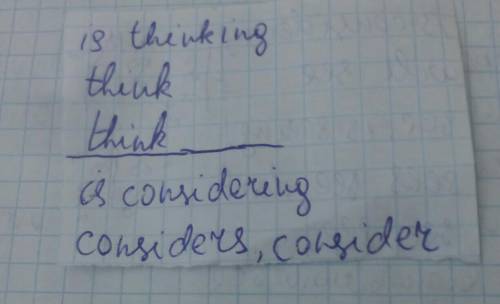 is thinking
think
think
is considering
considers, consider